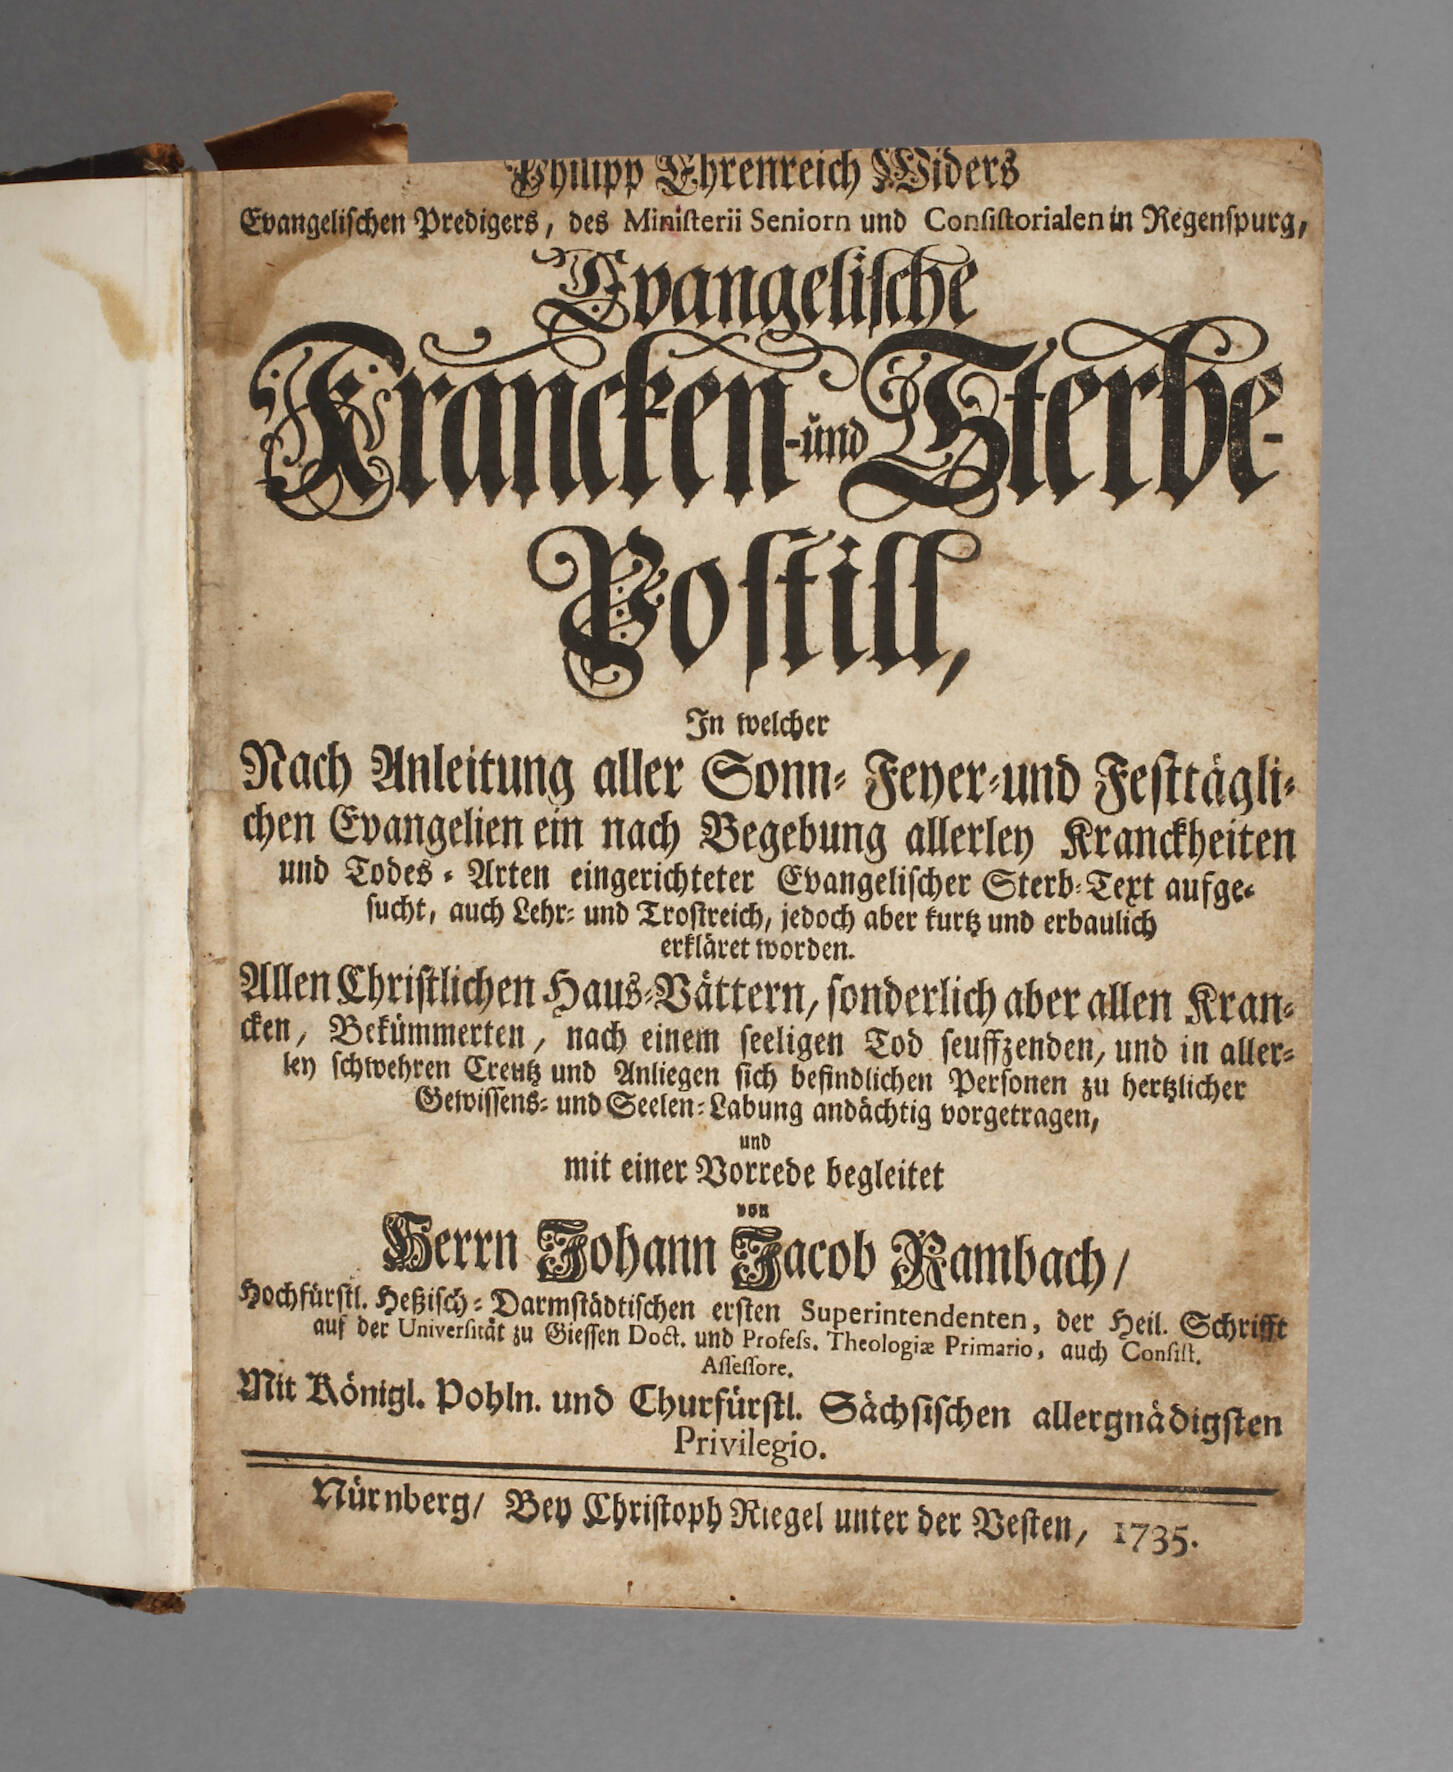 Philipp Ehrenreich Widers
Evangelischen Predigers, des Ministerii Seniorn und Consistorialen in Regenspurg,
Evangelische
Krancken-und Sterbe-
Postill,
In welcher
Nach Anleitung aller Sonn- Feyer-und Festtägli-
chen Evangelien ein nach Begebung allerley Kranckheiten
und Todes-Arten eingerichteter Evangelischer Sterb-Text aufge-
sucht, auch Lehr- und Trostreich, jedoch aber kurtz und erbaulich
erkläret worden.
Allen Christlichen Haus-Vättern, sonderlich aber allen Kran-
cken, Bekümmerten, nach einem seeligen Tod seuffzenden, und in aller-
ley schwehren Creutz und Anliegen sich befindlichen Personen zu hertzlicher
Gewissens- und Seelen-Labung andächtig vorgetragen,
und
mit einer Vorrede begleitet
von
Herrn Johann Jacob Rambach/
Hochfürstl. Heßisch-Darmstädtischen ersten Superintendenten, der Heil. Schrifft
auf der Universität zu Giessen Doct. und Profess. Theologiæ Primario, auch Consist.
Assessore.
Mit Königl. Pohln. und Churfürstl. Sächsischen allergnädigsten
Privilegio.
Nürnberg/ Bey Christoph Riegel unter der Vesten, 1735.